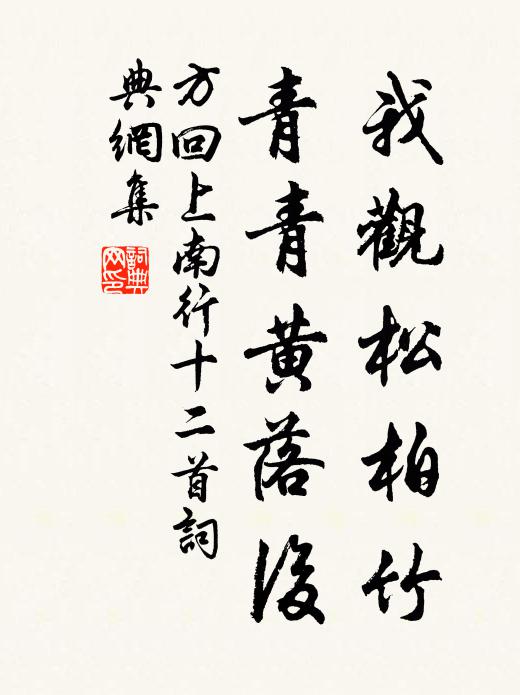 我觀松柏竹
青青黄落後
方回上南行十二首詞
典網集
詞典网印